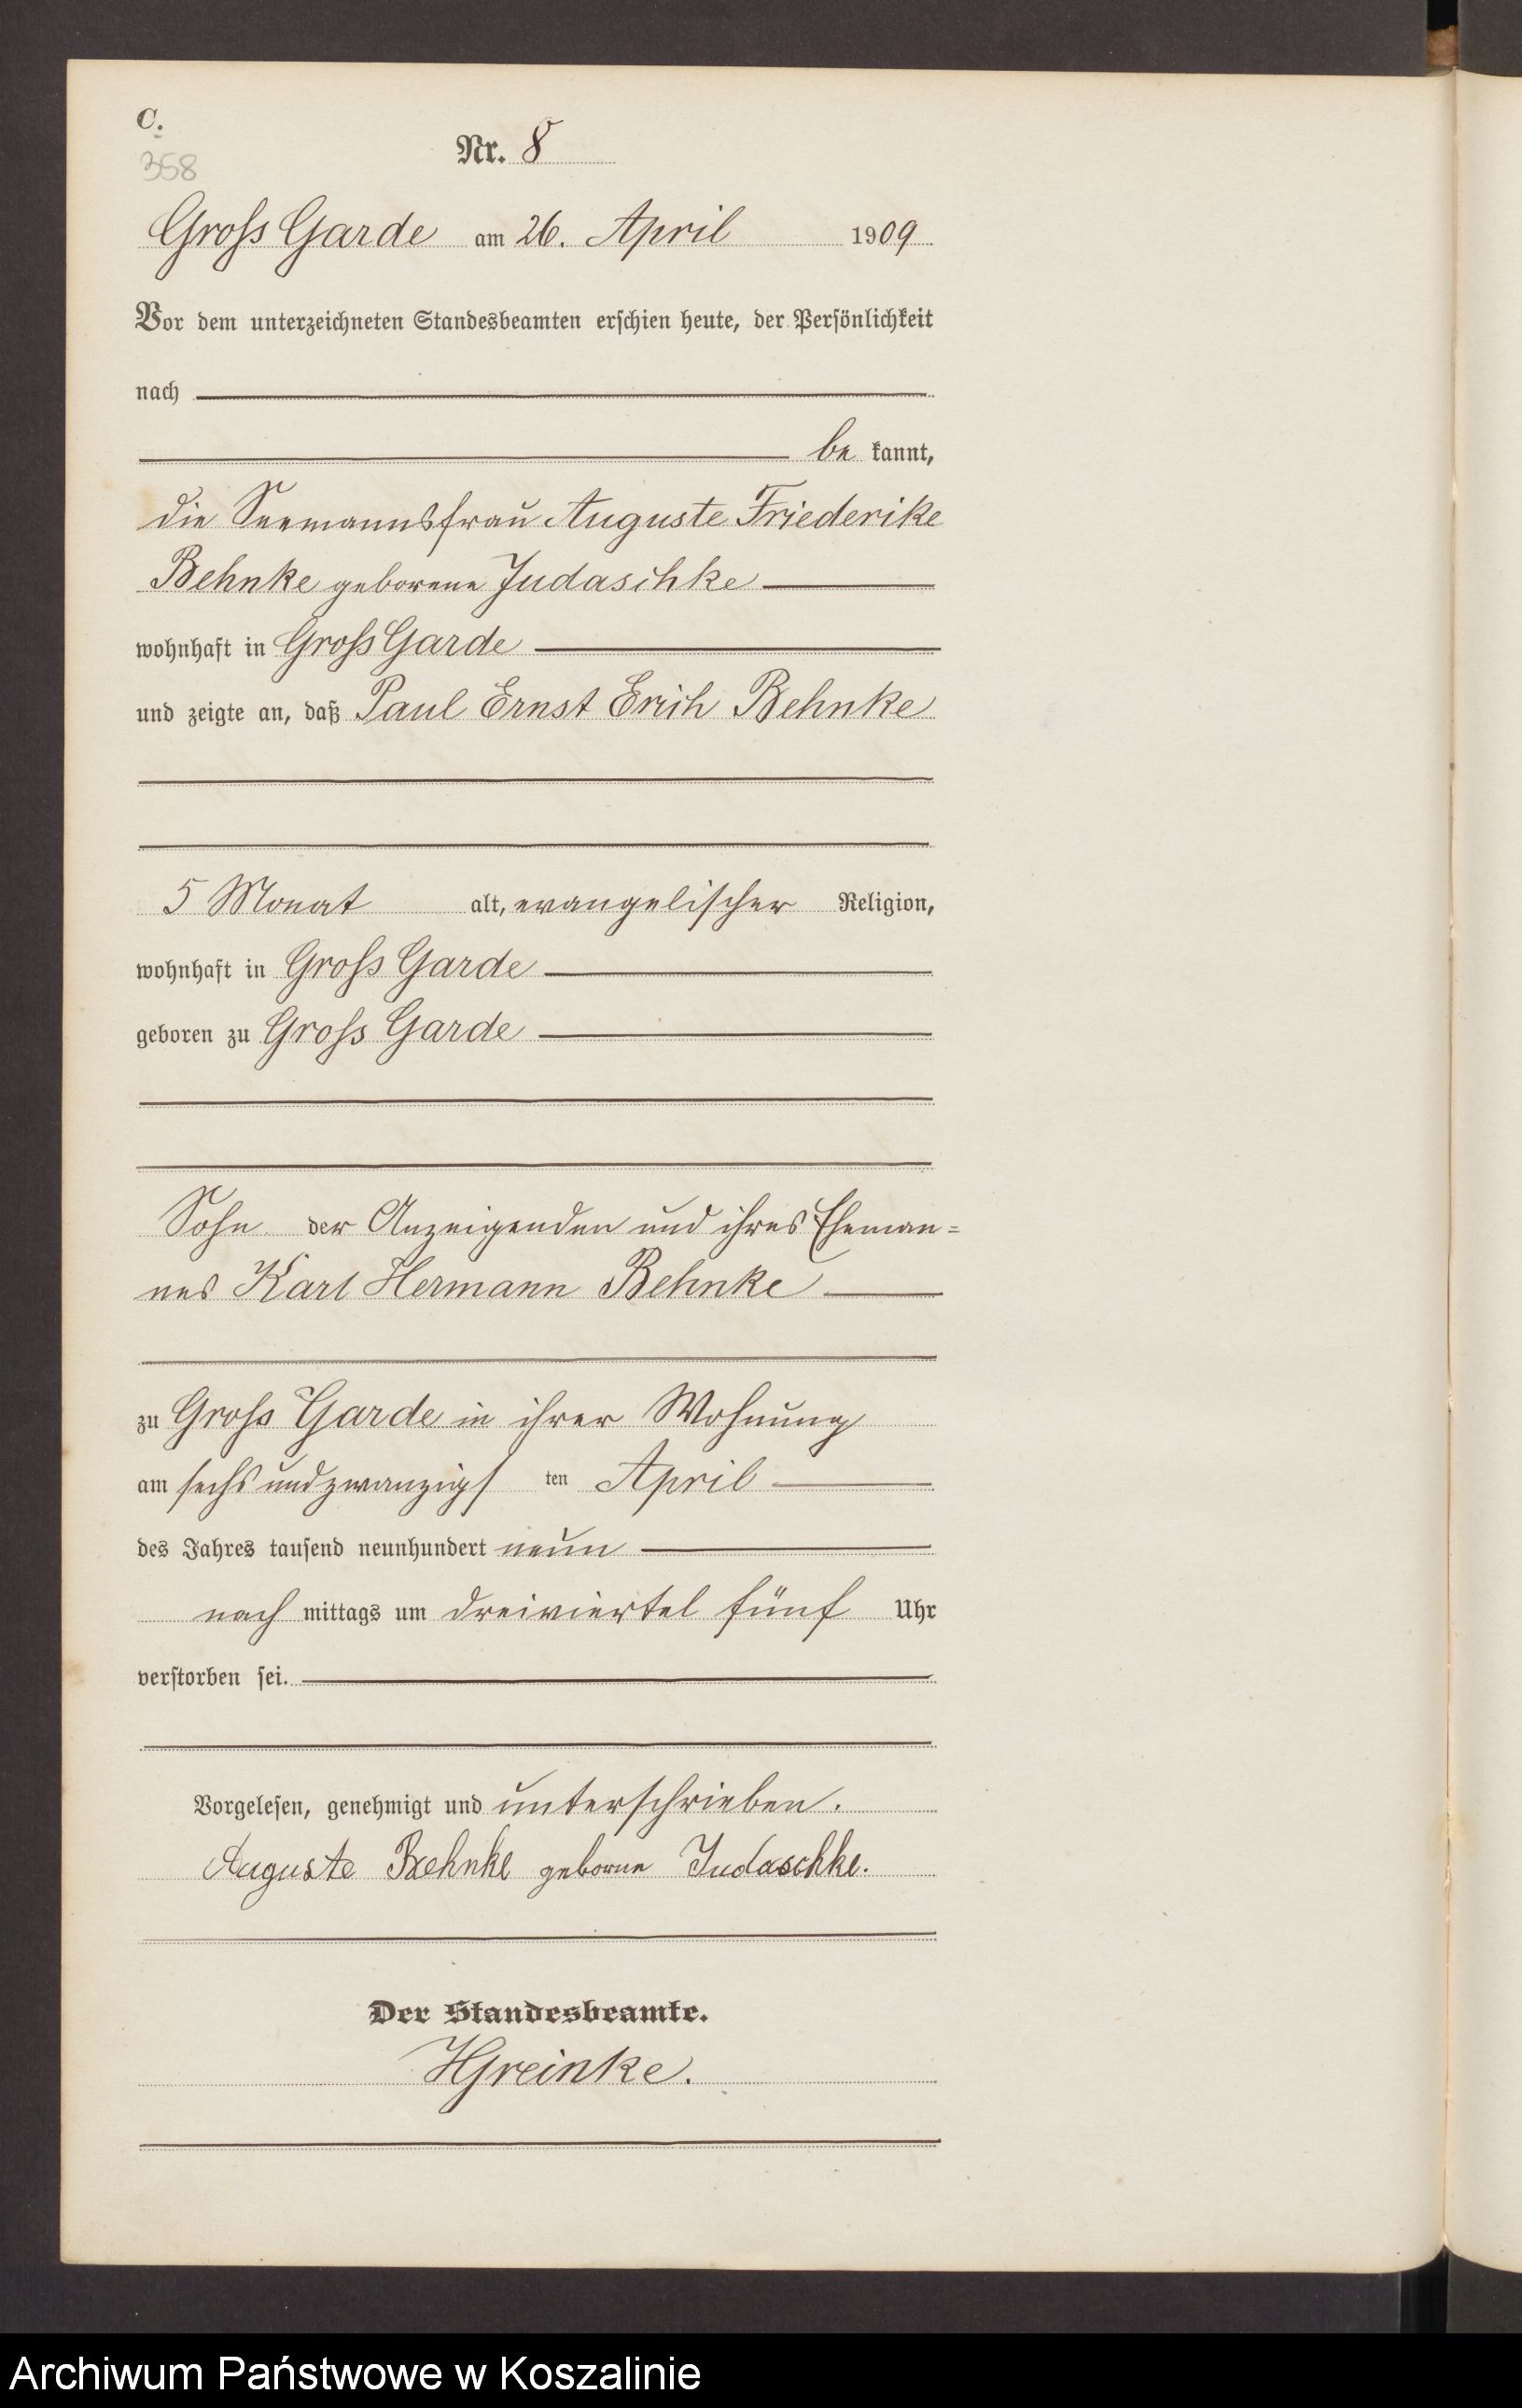 C.
358
Nr. 8
Gross Garde am 26. April 1909
Vor dem unterzeichneten Standesbeamten erschien heute, der Persönlichkeit
nach
be kannt,
die Seemannsfrau Auguste Friederike
Behnke geborene Judaschke
wohnhaft in Gross Garde
und zeigte an, daß Paul Ernst Erich Behnke
5 Monat alt, evangelischer Religion,
wohnhaft in Gross Garde
geboren zu Gross Garde
Sohn der Anzeigenden und ihres Eheman=
nes Karl Hermann Behnke
zu Gross Garde in ihrer Wohnung
am sechsundzwanzigs ten April
des Jahres tausend neunhundert neun
nach mittags um dreiviertel fünf Uhr
verstorben sei.
Vorgelesen, genehmigt und unterschrieben.
Auguste Behnke geborne Judaschke.
Der Standesbeamte.
HGreinke.
Archiwum Państwowe w Koszalinie